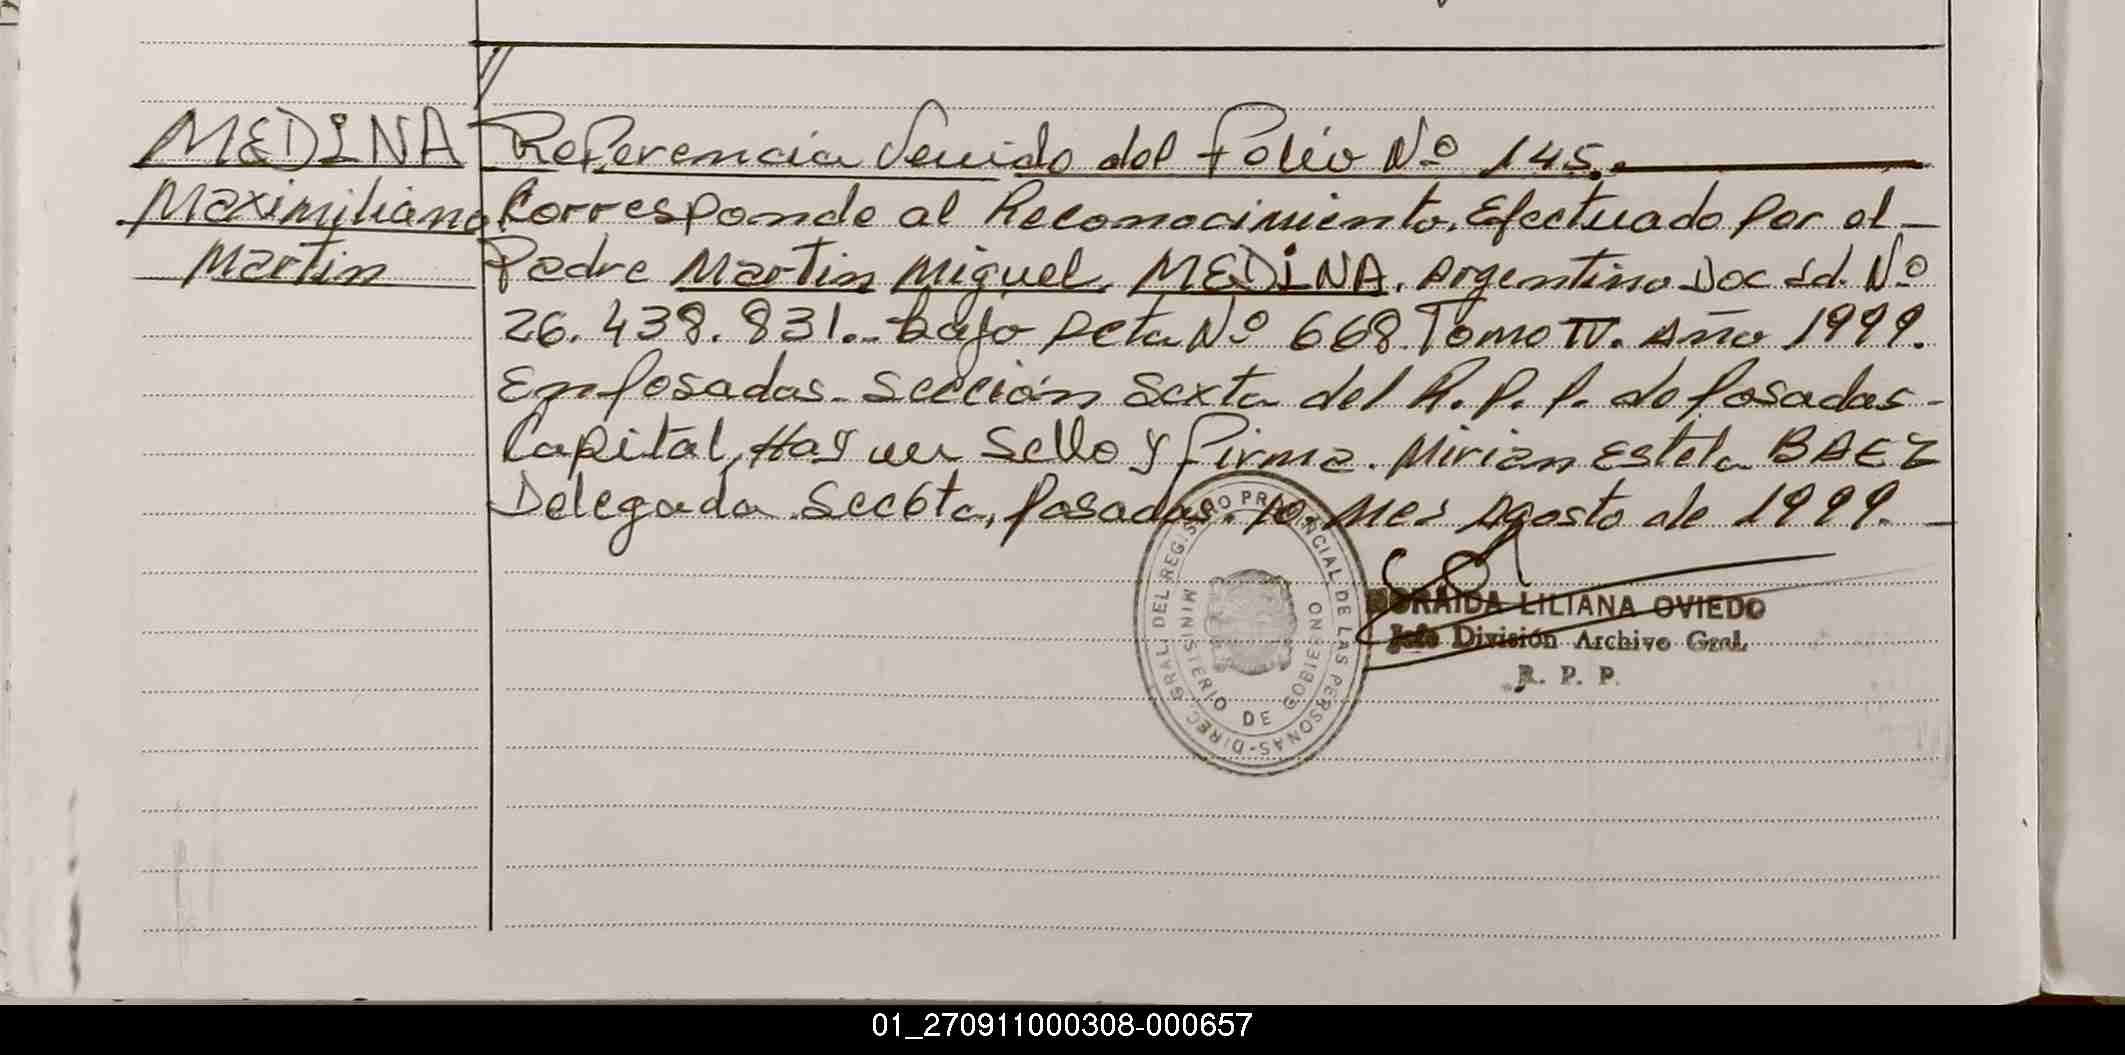 MEDINA
Maximiliano
Martin
Referencia Venido del Folio Nº 145.
Corresponde al Reconocimiento. Efectuado Por el
Padre Martin Miguel. MEDINA. Argentino Doc Id. Nº
26.438.831.- bajo Acta Nº 668. Tomo IV. Año 1999.
En Posadas. Sección Sexta del R. P. P. de Posadas-
Capital, Hay un Sello y Firma. Mirian Estela BAEZ
Delegada Sec6ta, Posadas. 10. Mes Agosto de 1999.
DIREC. GRAL. DEL REGISTRO PROVINCIAL DE LAS PERSONAS-
MINISTERIO DE GOBIERNO
LILIANA OVIEDO
Jefe División Archivo Gral.
R. P. P.
01_270911000308-000657